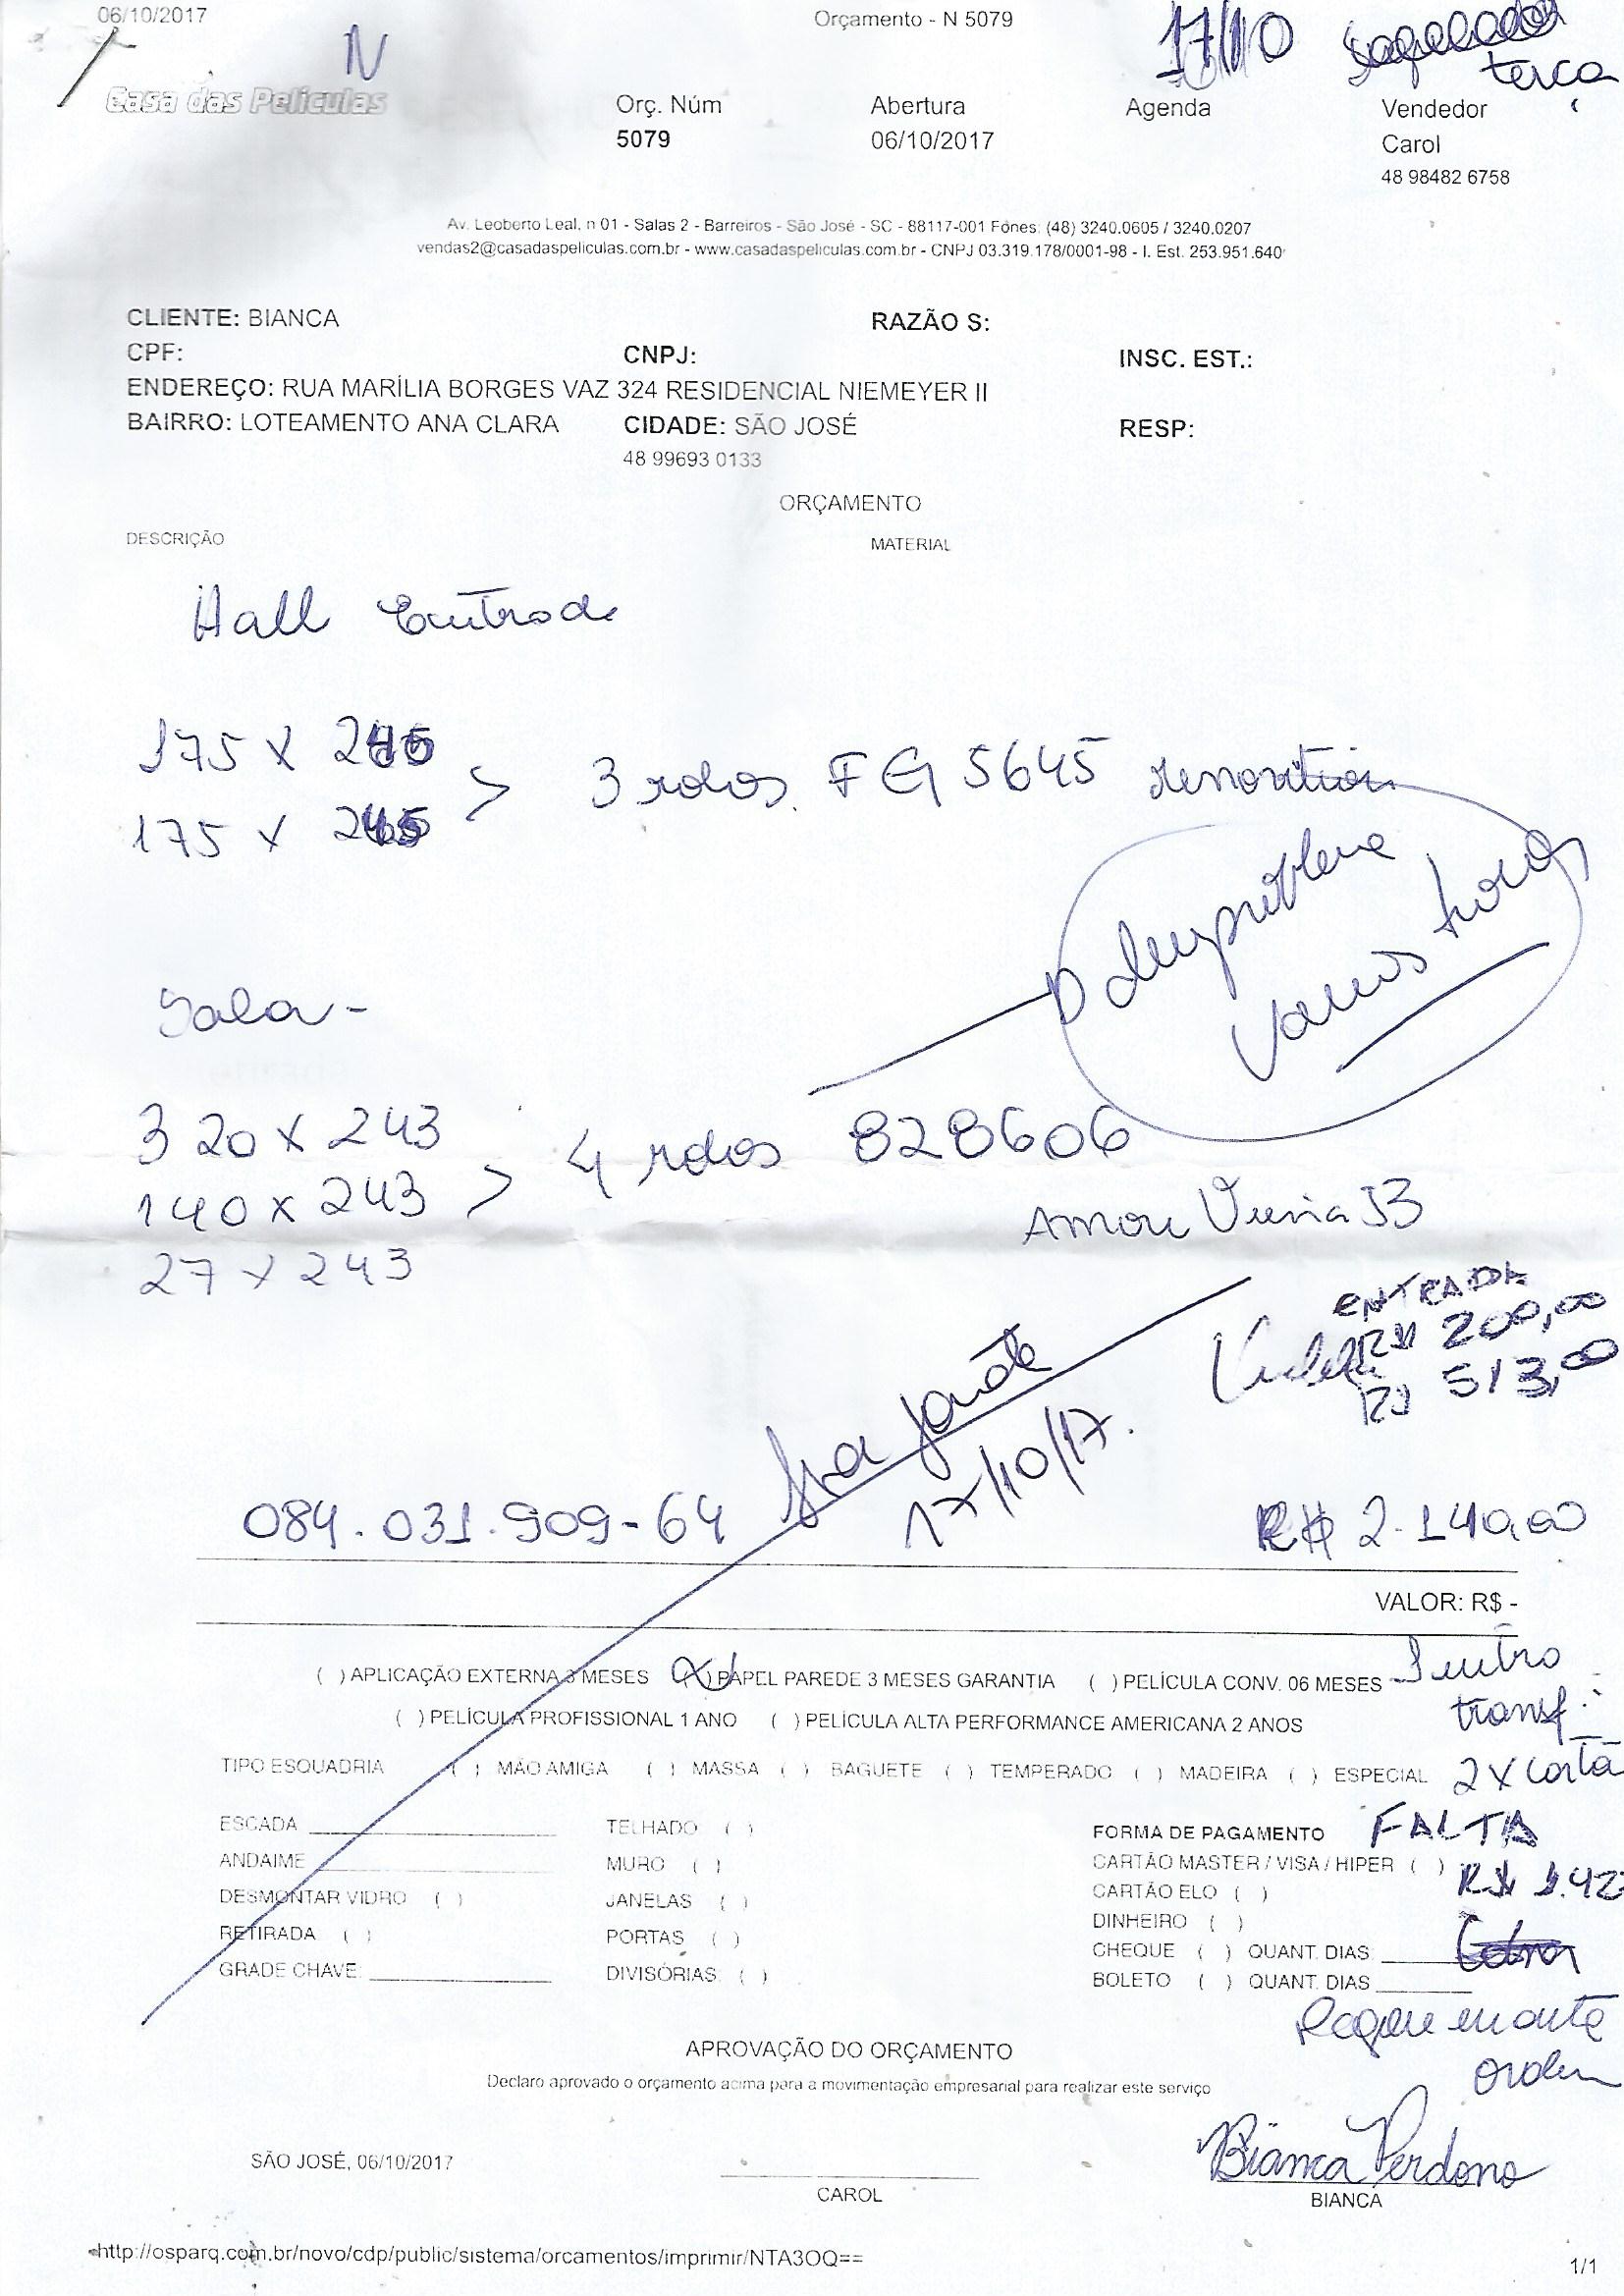 06/10/2017
Orçamento - N 5079
17/10
terça
N
Casa das Películas
Orç. Núm
5079
Abertura
06/10/2017
Agenda
Vendedor
Carol
48 98482 6758
Av. Leoberto Leal, n 01 - Salas 2 - Barreiros - São José - SC - 88117-001 Fones: (48) 3240.0605 / 3240.0207
vendas2@casadaspeliculas.com.br - www.casadaspeliculas.com.br - CNPJ 03.319.178/0001-98 - I. Est. 253.951.640
CLIENTE: BIANCA
RAZÃO S:
CPF:
CNPJ:
INSC. EST.:
ENDEREÇO: RUA MARÍLIA BORGES VAZ 324 RESIDENCIAL NIEMEYER II
BAIRRO: LOTEAMENTO ANA CLARA
CIDADE: SÃO JOSÉ
RESP:
48 99693 0133
ORÇAMENTO
DESCRIÇÃO
MATERIAL
Hall Entrada
175 x 245
175 x 245
> 3 rolos. FG 5645 renovation
Sala -
320 x 243
140 x 243
27 x 243
> 4 rolos 828606
ENTRADA
R$ 200,00
R$ 513,00
17/10/17.
084.031.909-64
R$ 2.140,00
VALOR: R$ -
( ) APLICAÇÃO EXTERNA 3 MESES (x) PAPEL PAREDE 3 MESES GARANTIA ( ) PELÍCULA CONV. 06 MESES
( ) PELÍCULA PROFISSIONAL 1 ANO ( ) PELÍCULA ALTA PERFORMANCE AMERICANA 2 ANOS
transf.
TIPO ESQUADRIA ( ) MÃO AMIGA ( ) MASSA ( ) BAGUETE ( ) TEMPERADO ( ) MADEIRA ( ) ESPECIAL
2x cartã
ESCADA
ANDAIME
DESMONTAR VIDRO ( )
RETIRADA ( )
GRADE CHAVE:
TELHADO: ( )
MURO ( )
JANELAS ( )
PORTAS ( )
DIVISÓRIAS: ( )
FORMA DE PAGAMENTO
FALTA
CARTÃO MASTER / VISA / HIPER ( )
R$ 1.42
CARTÃO ELO ( )
DINHEIRO ( )
CHEQUE ( ) QUANT. DIAS:
BOLETO ( ) QUANT. DIAS
APROVAÇÃO DO ORÇAMENTO
Declaro aprovado o orçamento acima para a movimentação empresarial para realizar este serviço
SÃO JOSÉ, 06/10/2017
CAROL
Bianca Perdona
BIANCA
http://osparq.com.br/novo/cdp/public/sistema/orcamentos/imprimir/NTA3OQ==
1/1